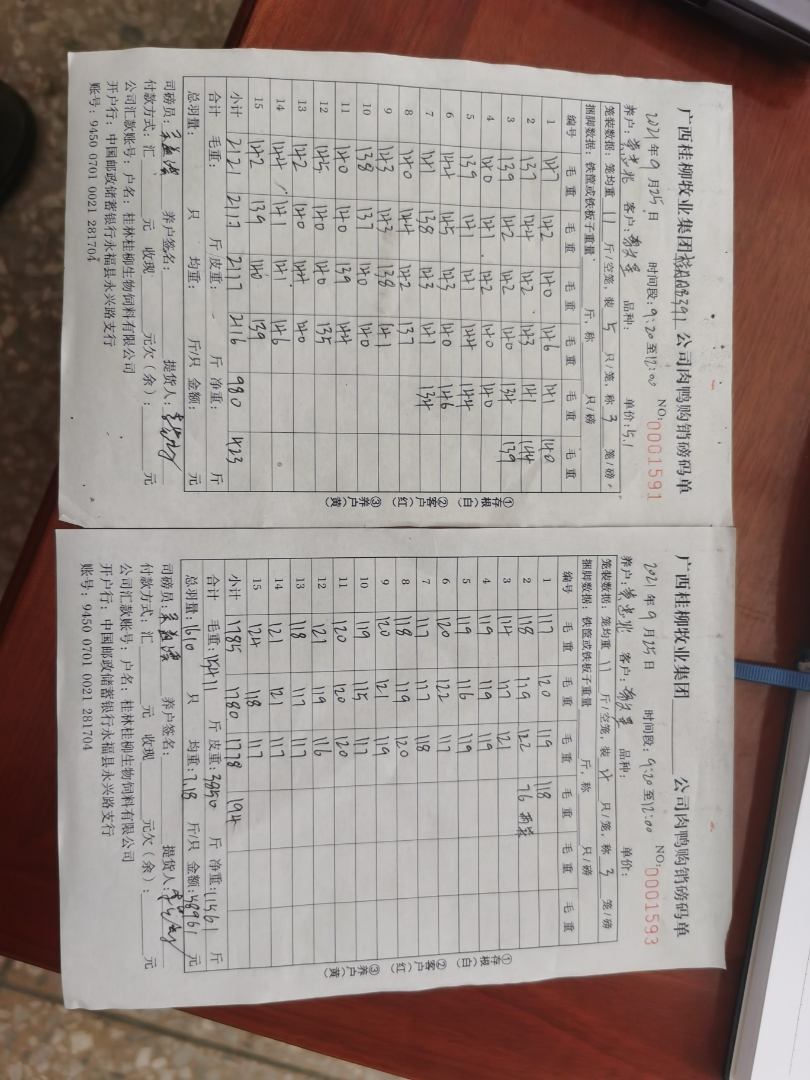 广西桂柳牧业集团 公司肉鸭购销磅码单
NO: 0001591
2021年9月25日 时间段: 9:20至12:00
养户: 客户: 品种: 单价: 5.1
笼装数据: 笼均重 11 斤/空笼, 装 5 只/笼, 称 3 笼/磅。
捆脚数据: 铁筐或铁板子重量 斤, 称 只/磅
编号 毛重 毛重 毛重 毛重 毛重 毛重
1 147 142 140 146 141 140
2 137 144 142 143 141 144
3 139 142 142 140 134 139
4 140 141 142 140 140
5 139 141 141 144 144
6 144 145 143 140 146
7 141 138 143 141 134
8 140 144 142 137
9 143 143 138 141
10 138 137 140 140
11 140 140 139 144
12 145 140 140 135
13 142 140 144 140
14 144 141 141 146
15 142 139 140 139
小计 2121 2117 2117 2116 980 423
合计 毛重: 斤 皮重: 斤 净重: 斤
总羽量: 只 均重: 斤/只 金额: 元
司磅员: 养户签名: 提货人:
付款方式: 汇 元 收现 元欠(余): 元
公司汇款账号: 户名: 桂林桂柳生物饲料有限公司
开户行: 中国邮政储蓄银行永福县永兴路支行
账号: 9450 0701 0021 281704
①存根(白) ②客户(红) ③养户(黄)
广西桂柳牧业集团 公司肉鸭购销磅码单
NO: 0001593
2021年9月25日 时间段: 9:20至12:00
养户: 客户: 品种: 单价:
笼装数据: 笼均重 11 斤/空笼, 装 4 只/笼, 称 3 笼/磅
捆脚数据: 铁筐或铁板子重量 斤, 称 只/磅
编号 毛重 毛重 毛重 毛重 毛重 毛重
1 117 120 119 118
2 118 119 122 76
3 114 117 121
4 119 119 119
5 119 116 119
6 120 122 117
7 117 117 118
8 118 119 120
9 120 121 119
10 119 115 117
11 120 120 120
12 121 119 116
13 118 117 117
14 121 121 117
15 124 118 117
小计 1785 1780 1778 194
合计 毛重: 15411 斤 皮重: 3850 斤 净重: 11561 斤
总羽量: 1610 只 均重: 7.18 斤/只 金额: 58961 元
司磅员: 养户签名: 提货人:
付款方式: 汇 元 收现 元欠(余): 元
公司汇款账号: 户名: 桂林桂柳生物饲料有限公司
开户行: 中国邮政储蓄银行永福县永兴路支行
账号: 9450 0701 0021 281704
①存根(白) ②客户(红) ③养户(黄)